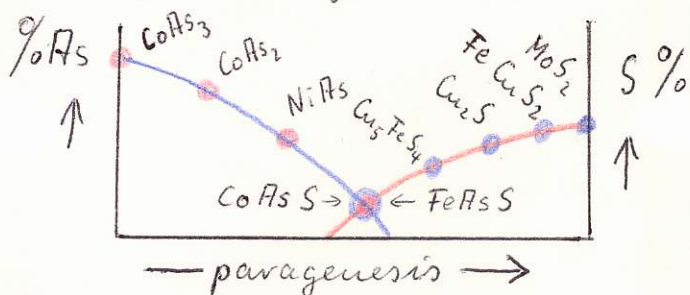 %As
CoAs₃
CoAs₂
NiAs
Cu₅FeS₄
Cu₂S
FeCuS₂
MoS₂
S%
CoAsS → ← FeAsS
— paragenesis →